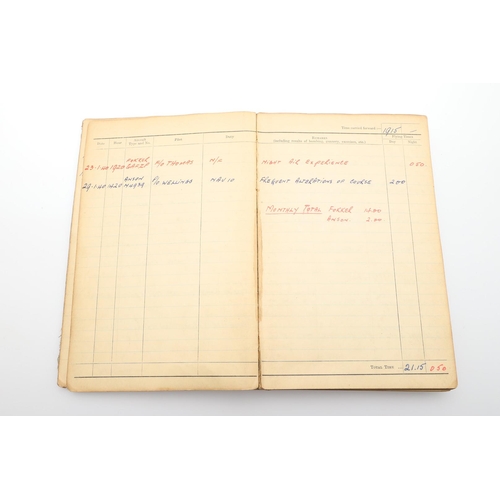 Time carried forward :— 19.15
Date Hour Aircraft Type and No. Pilot Duty Remarks (including results of bombing, gunnery, exercises, etc.) Flying Times Day Night
FOKKER
29-1-40 1920 P/O THOMAS W/O NIGHT AIR EXPERIENCE 0.50
ANSON
29-1-40 1220 P/O WELLINGS NAV 10 FREQUENT ALTERATIONS OF COURSE 2.00
MONTHLY TOTAL FOKKER
ANSON 2.00
TOTAL TIME 21.15 0.50